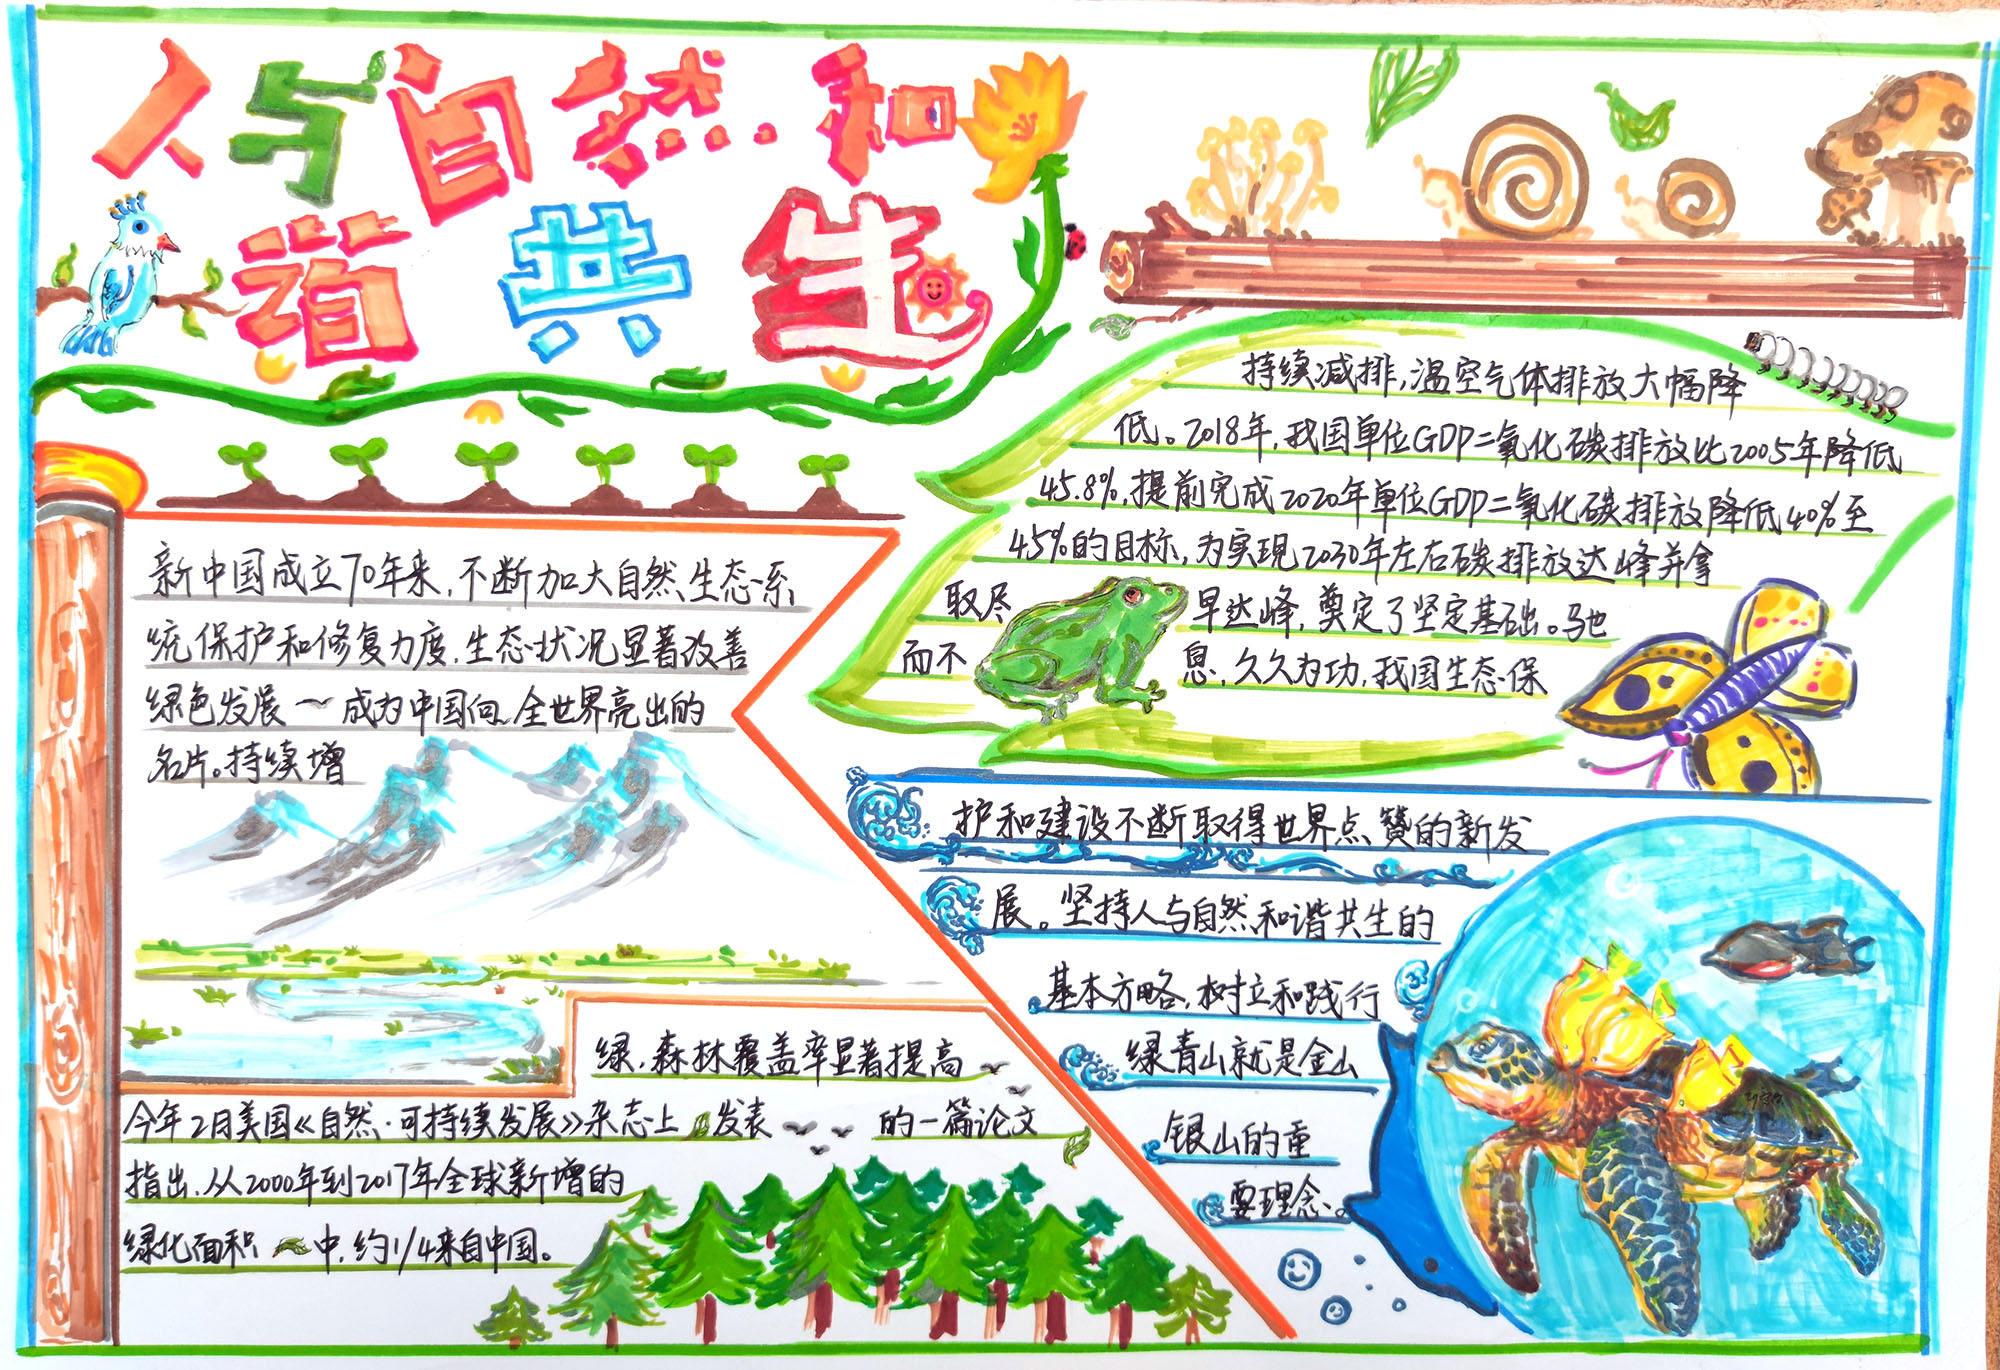 人与自然和
谐共生
新中国成立70年来,不断加大自然生态系
统保护和修复力度,生态状况显著改善
绿色发展~成为中国向全世界亮出的
名片。持续增
绿,森林覆盖率显著提高
今年2月美国《自然·可持续发展》杂志上发表的一篇论文
指出,从2000年到2017年全球新增的
绿化面积中,约1/4来自中国。
持续减排,温空气体排放大幅降
低。2018年,我国单位GDP二氧化碳排放比2005年降低
45.8%,提前完成2020年单位GDP二氧化碳排放降低40%至
45%的目标,为实现2030年左右碳排放达峰并拿
取尽早达峰,奠定了坚定基础。驰
而不息,久久为功,我国生态保
护和建设不断取得世界点赞的新发
展。坚持人与自然和谐共生的
基本方略,树立和践行
绿青山就是金山
银山的重
要理念。